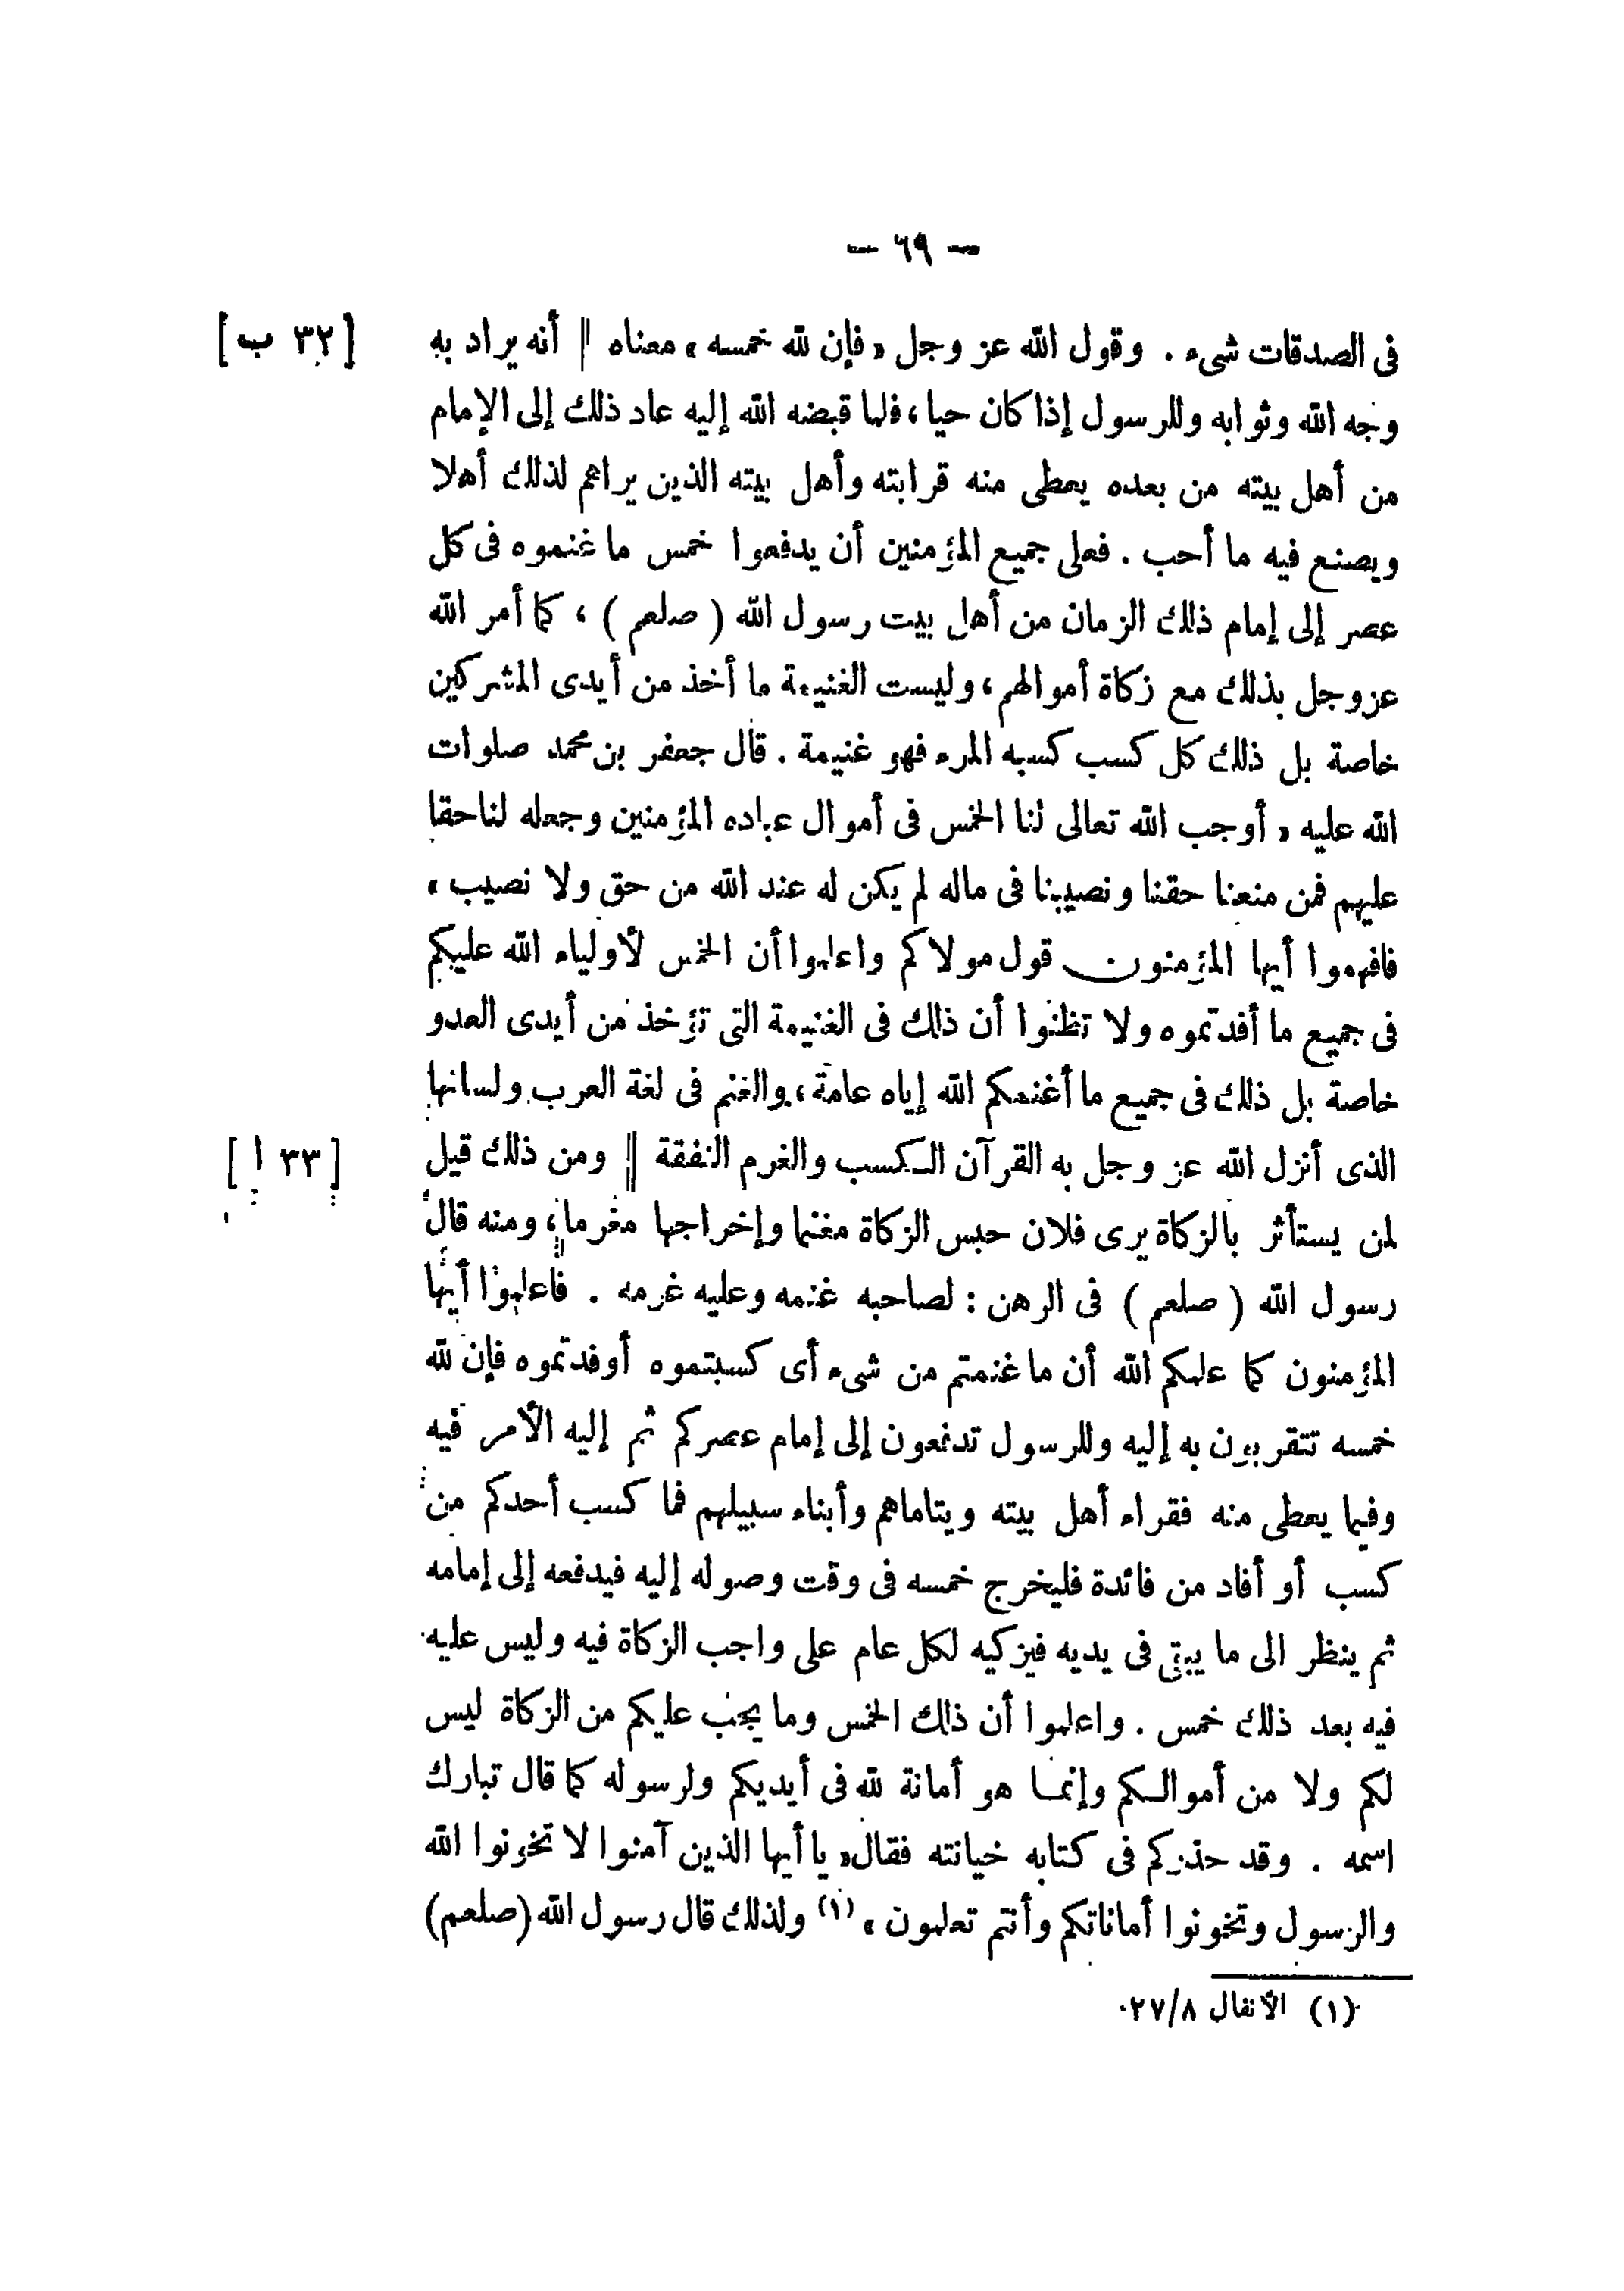 — ٦٩ —
فى الصدقات شىء . وقول الله عز وجل «فإن لله خمسه» معناه || أنه يراد به [٣٢ ب]
وجه الله وثوابه وللرسول إذا كان حيا، فلما قبضه الله إليه عاد ذلك إلى الإمام
من أهل بيته من بعده يعطى منه قرابته وأهل بيته الذين يراهم لذلك أهلا
ويصنع فيه ما أحب . فعلى جميع المؤمنين أن يدفعوا خمس ما غنموه فى كل
عصر إلى إمام ذلك الزمان من أهل بيت رسول الله ( صلعم ) ، كما أمر الله
عزوجل بذلك مع زكاة أموالهم، وليست الغنيمة ما أخذ من أيدى المشركين
خاصة بل ذلك كل كسب كسبه المرء فهو غنيمة . قال جعفر بن محمد صلوات
الله عليه « أوجب الله تعالى لنا الخمس فى أموال عباده المؤمنين وجعله لنا حقا
عليهم فمن منعنا حقنا ونصيبنا فى ماله لم يكن له عند الله من حق ولا نصيب »
فافهموا أيها المؤمنون قول مولاكم واعلموا أن الخمس لأولياء الله عليكم
فى جميع ما أفدتموه ولا تظنوا أن ذلك فى الغنيمة التى تؤخذ من أيدى العدو
خاصة بل ذلك فى جميع ما أغنمكم الله إياه عامة، والغنم فى لغة العرب ولسانها
الذى أنزل الله عز وجل به القرآن الكسب والغرم النفقة || ومن ذلك قيل [٣٣ ا]
لمن يستأثر بالزكاة يرى فلان حبس الزكاة مغنما وإخراجها مغرما، ومنه قال
رسول الله ( صلعم ) فى الرهن : لصاحبه غنمه وعليه غرمه . فاعلموا أيها
المؤمنون كما علمكم الله أن ما غنمتم من شىء أى كسبتموه أوفدتموه فإن لله
خمسه تتقربون به إليه وللرسول تدفعون إلى إمام عصركم ثم إليه الأمر فيه
وفيما يعطى منه فقراء أهل بيته ويتاماهم وأبناء سبيلهم فما كسب أحدكم من
كسب أو أفاد من فائدة فليخرج خمسه فى وقت وصوله إليه فيدفعه إلى إمامه
ثم ينظر الى ما يبقى فى يديه فيزكيه لكل عام على واجب الزكاة فيه وليس عليه
فيه بعد ذلك خمس . واعلموا أن ذلك الخمس وما يجب عليكم من الزكاة ليس
لكم ولا من أموالكم وإنما هو أمانة لله فى أيديكم ولرسوله كما قال تبارك
اسمه . وقد حذركم فى كتابه خيانته فقال« يا أيها الذين آمنوا لا تخونوا الله
والرسول وتخونوا أماناتكم وأنتم تعلمون » (١) ولذلك قال رسول الله (صلعم)
(١) الأنفال ٢٧/٨.